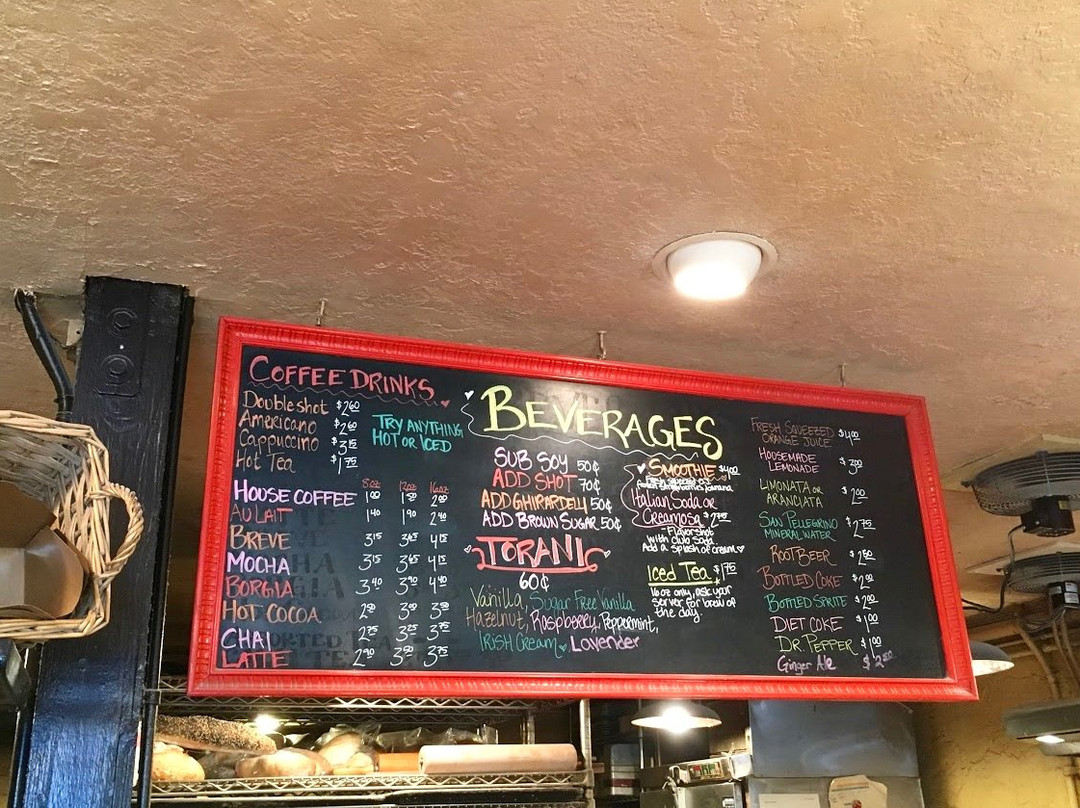 COFFEE DRINKS
Double shot $2.60
Americano $2.60
Cappuccino $3.15
Hot Tea $1.75
TRY ANYTHING
HOT OR ICED
8oz 12oz 16oz
HOUSE COFFEE 1.00 1.50 2.00
AU LAIT 1.40 1.90 2.40
BREVE 3.15 3.65 4.15
MOCHA 3.15 3.65 4.15
BORGIA 3.40 3.90 4.40
HOT COCOA
CHAI 2.75 3.25 3.75
LATTE
BEVERAGES
SUB SOY 50¢
ADD SHOT 70¢
ADD GHIRARDELLI 50¢
ADD BROWN SUGAR 50¢
TORANI
60¢
Vanilla, Sugar Free Vanilla
Hazelnut, Raspberry, Peppermint,
IRISH Cream Lavender
SMOOTHIE $4.00
Italian Soda or
Creamosa $2.75
- Flavor shot
with Club Soda
Add a splash of cream
Iced Tea $1.75
16oz only, ask your
server for brew of
the day
FRESH SQUEEZED
ORANGE JUICE $4.00
HOUSEMADE
LEMONADE $3.00
LIMONATA OR
ARANCIATA $2.00
SAN PELLEGRINO
MINERAL WATER $2.75
ROOT BEER $2.50
BOTTLED COKE $2.00
BOTTLED SPRITE $2.00
DIET COKE $1.00
DR. PEPPER $1.00
Ginger Ale $2.50